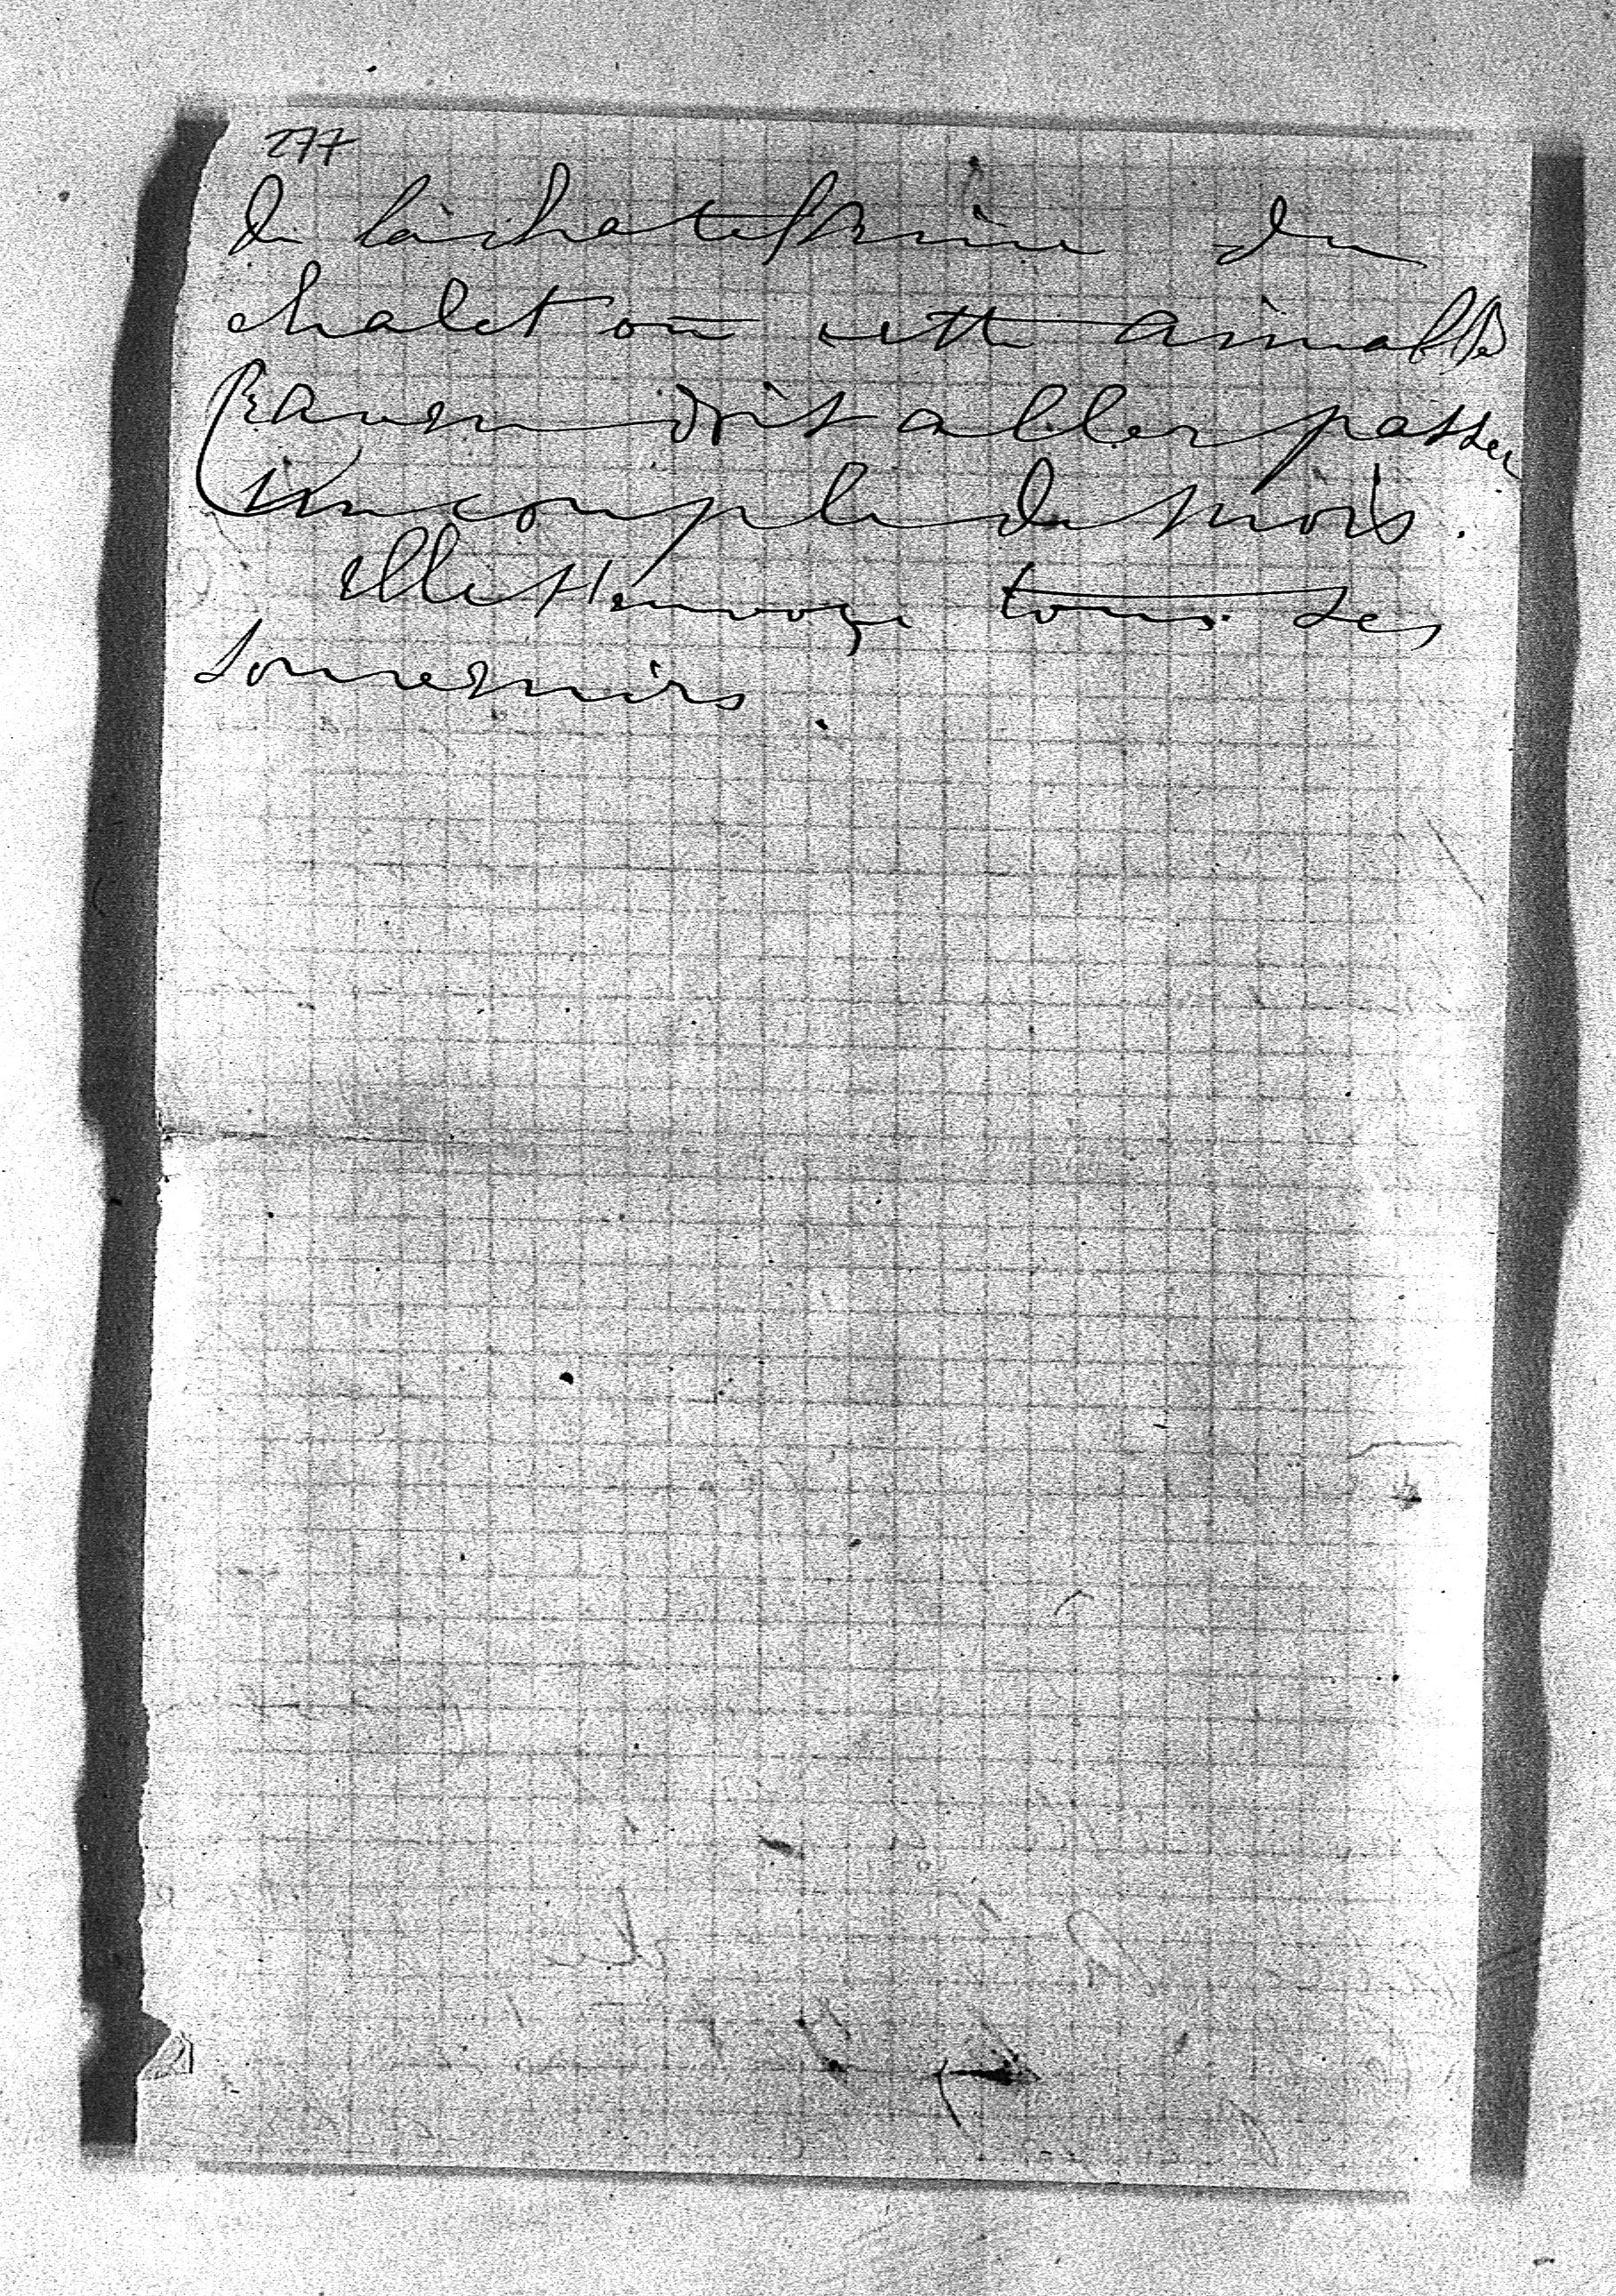 277
de la chatelaine du
chalet où cette aimable
doit aller passer
un couple de mois.
elle t'envoye tous ses
souvenirs.